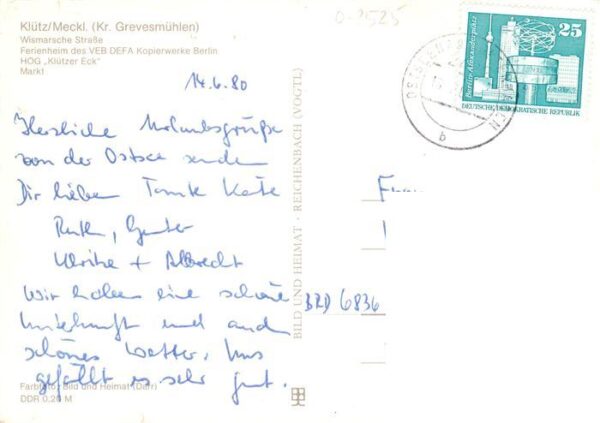 Klütz/Meckl. (Kr. Grevesmühlen)
Wismarsche Straße
Ferienheim des VEB DEFA Kopierwerke Berlin
HOG „Klützer Eck"
Markt
0-2525
14.6.80
Herzliche Urlaubsgrüße
von der Ostsee senden
Dir liebe Tante Käte
Ruth, Günter
Ulrike + Albrecht
Wir haben eine schöne
Unterkunft und auch
schönes Wetter. Uns
gefällt es sehr gut.
Farbfoto: Bild und Heimat (Darr)
DDR 0,20 M
BILD UND HEIMAT · REICHENBACH (VOGTL)
25
Berlin-Alexanderplatz
DEUTSCHE DEMOKRATISCHE REPUBLIK
b
BRD 6836